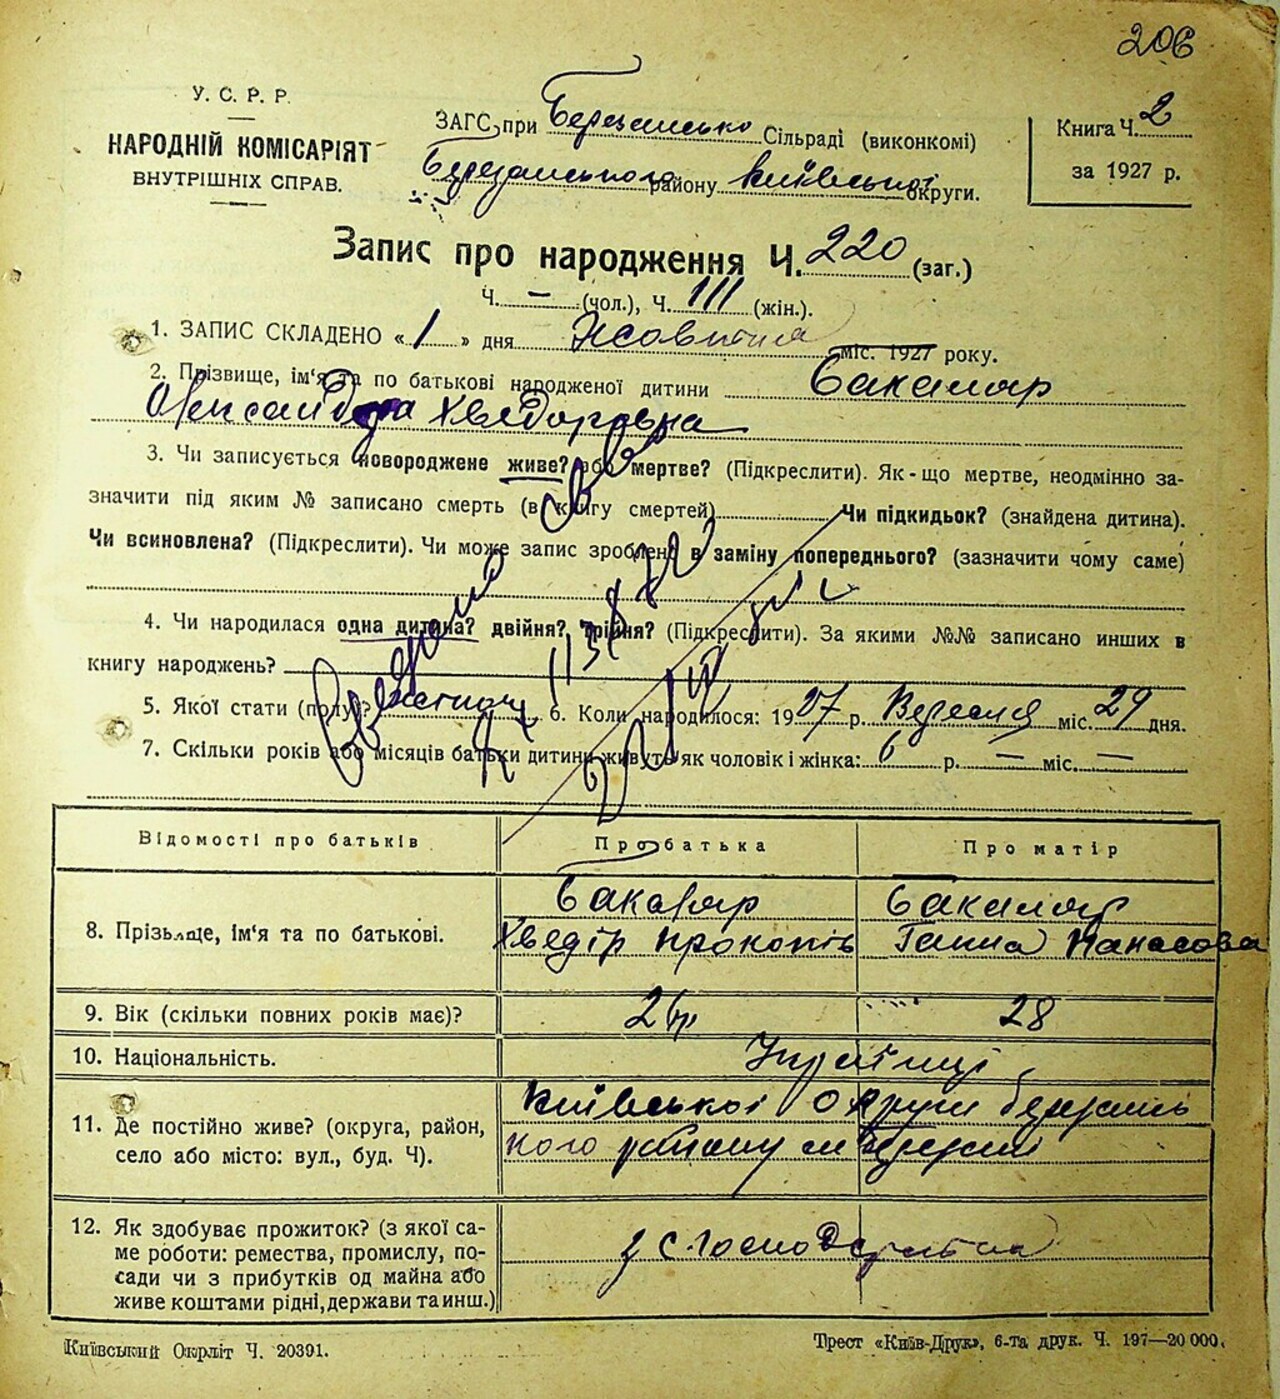 206
У. С. Р. Р.
НАРОДНІЙ КОМІСАРІЯТ
ВНУТРІШНІХ СПРАВ.
ЗАГС при Березансько Сільраді (виконкомі)
Березанського району Київської округи.
Книга Ч. 2
за 1927 р.
Запис про народження Ч. 220 (заг.)
Ч. — (чол.), Ч. 111 (жін.).
1. ЗАПИС СКЛАДЕНО «1» дня Жовтня міс. 1927 року.
2. Прізвище, ім'я та по батькові народженої дитини Бакаляр
Олександра Хведоровна
3. Чи записується новороджене живе? або мертве? (Підкреслити). Як-що мертве, неодмінно за-
значити під яким № записано смерть (в книгу смертей) Чи підкидьок? (знайдена дитина).
Чи всиновлена? (Підкреслити). Чи може запис зроблено в заміну попереднього? (зазначити чому саме)
4. Чи народилася одна дитина? двійня? трійня? (Підкреслити). За якими №№ записано инших в
книгу народжень?
5. Якої стати (полу)? 6. Коли народилося: 1927 р. Вересня міс. 29 дня.
7. Скільки років або місяців батьки дитини живуть як чоловік і жінка: 6 р. — міс. —
Відомості про батьків Про батька Про матір
8. Прізвище, ім'я та по батькові. Бакаляр Бакаляр
Хведір Прокопів Ганна Панасова
9. Вік (скільки повних років має)? 26 р. 28
10. Національність. Українці
11. Де постійно живе? (округа, район, Київської Округи Березансь
село або місто: вул., буд. Ч). кого району м Березані
12. Як здобуває прожиток? (з якої са-
ме роботи: ремества, промислу, по- з с. господарства
сади чи з прибутків од майна або
живе коштами рідні, держави та инш.)
Київський Окрліт Ч. 20391.
Трест «Київ-Друк», 6-та друк. Ч. 197—20 000.